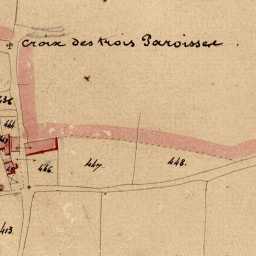 Croix des trois Paroisses.
446.
447.
448.
413.